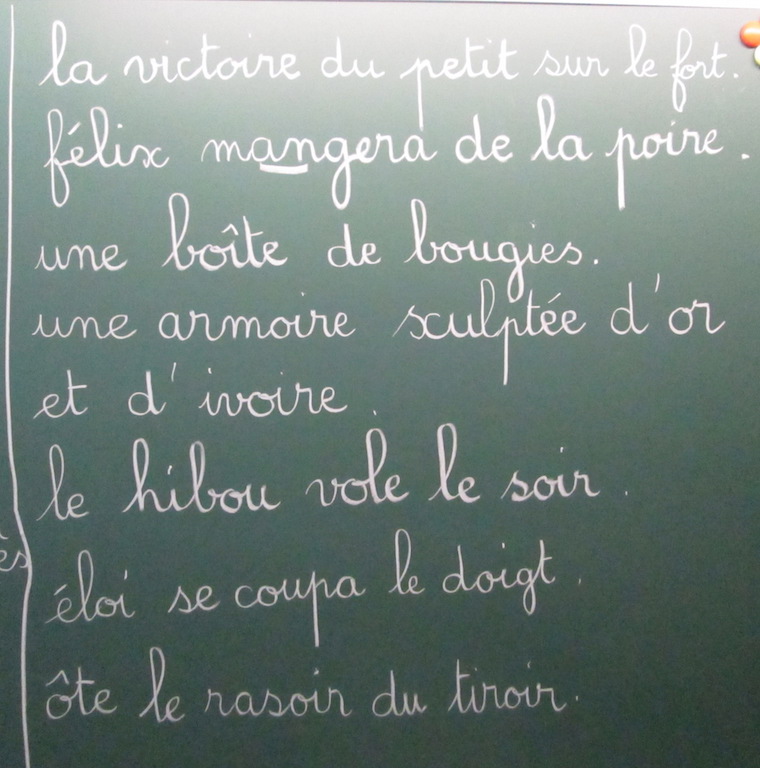 la victoire du petit sur le fort.
félix mangera de la poire.
une boîte de bougies.
une armoire sculptée d'or
et d'ivoire.
le hibou vole le soir.
és
éloi se coupa le doigt.
ôte le rasoir du tiroir.